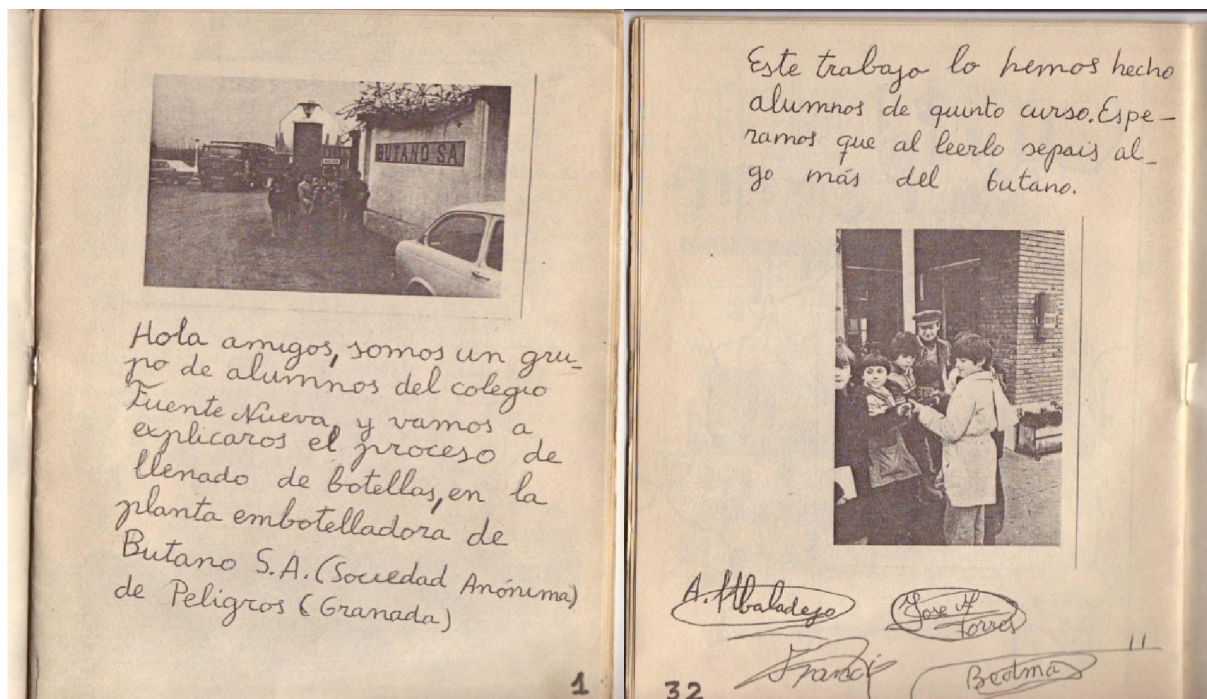 BUTANO S.A.
Hola amigos, somos un gru-
po de alumnos del colegio
Fuente Nueva, y vamos a
explicaros el proceso de
llenado de botellas, en la
planta embotelladora de
Butano S.A. (Sociedad Anónima)
de Peligros (Granada)
1
Este trabajo lo hemos hecho
alumnos de quinto curso. Espe-
ramos que al leerlo sepais al-
go más del butano.
A. Albaladejo
Jose A
Torres
Franci
32